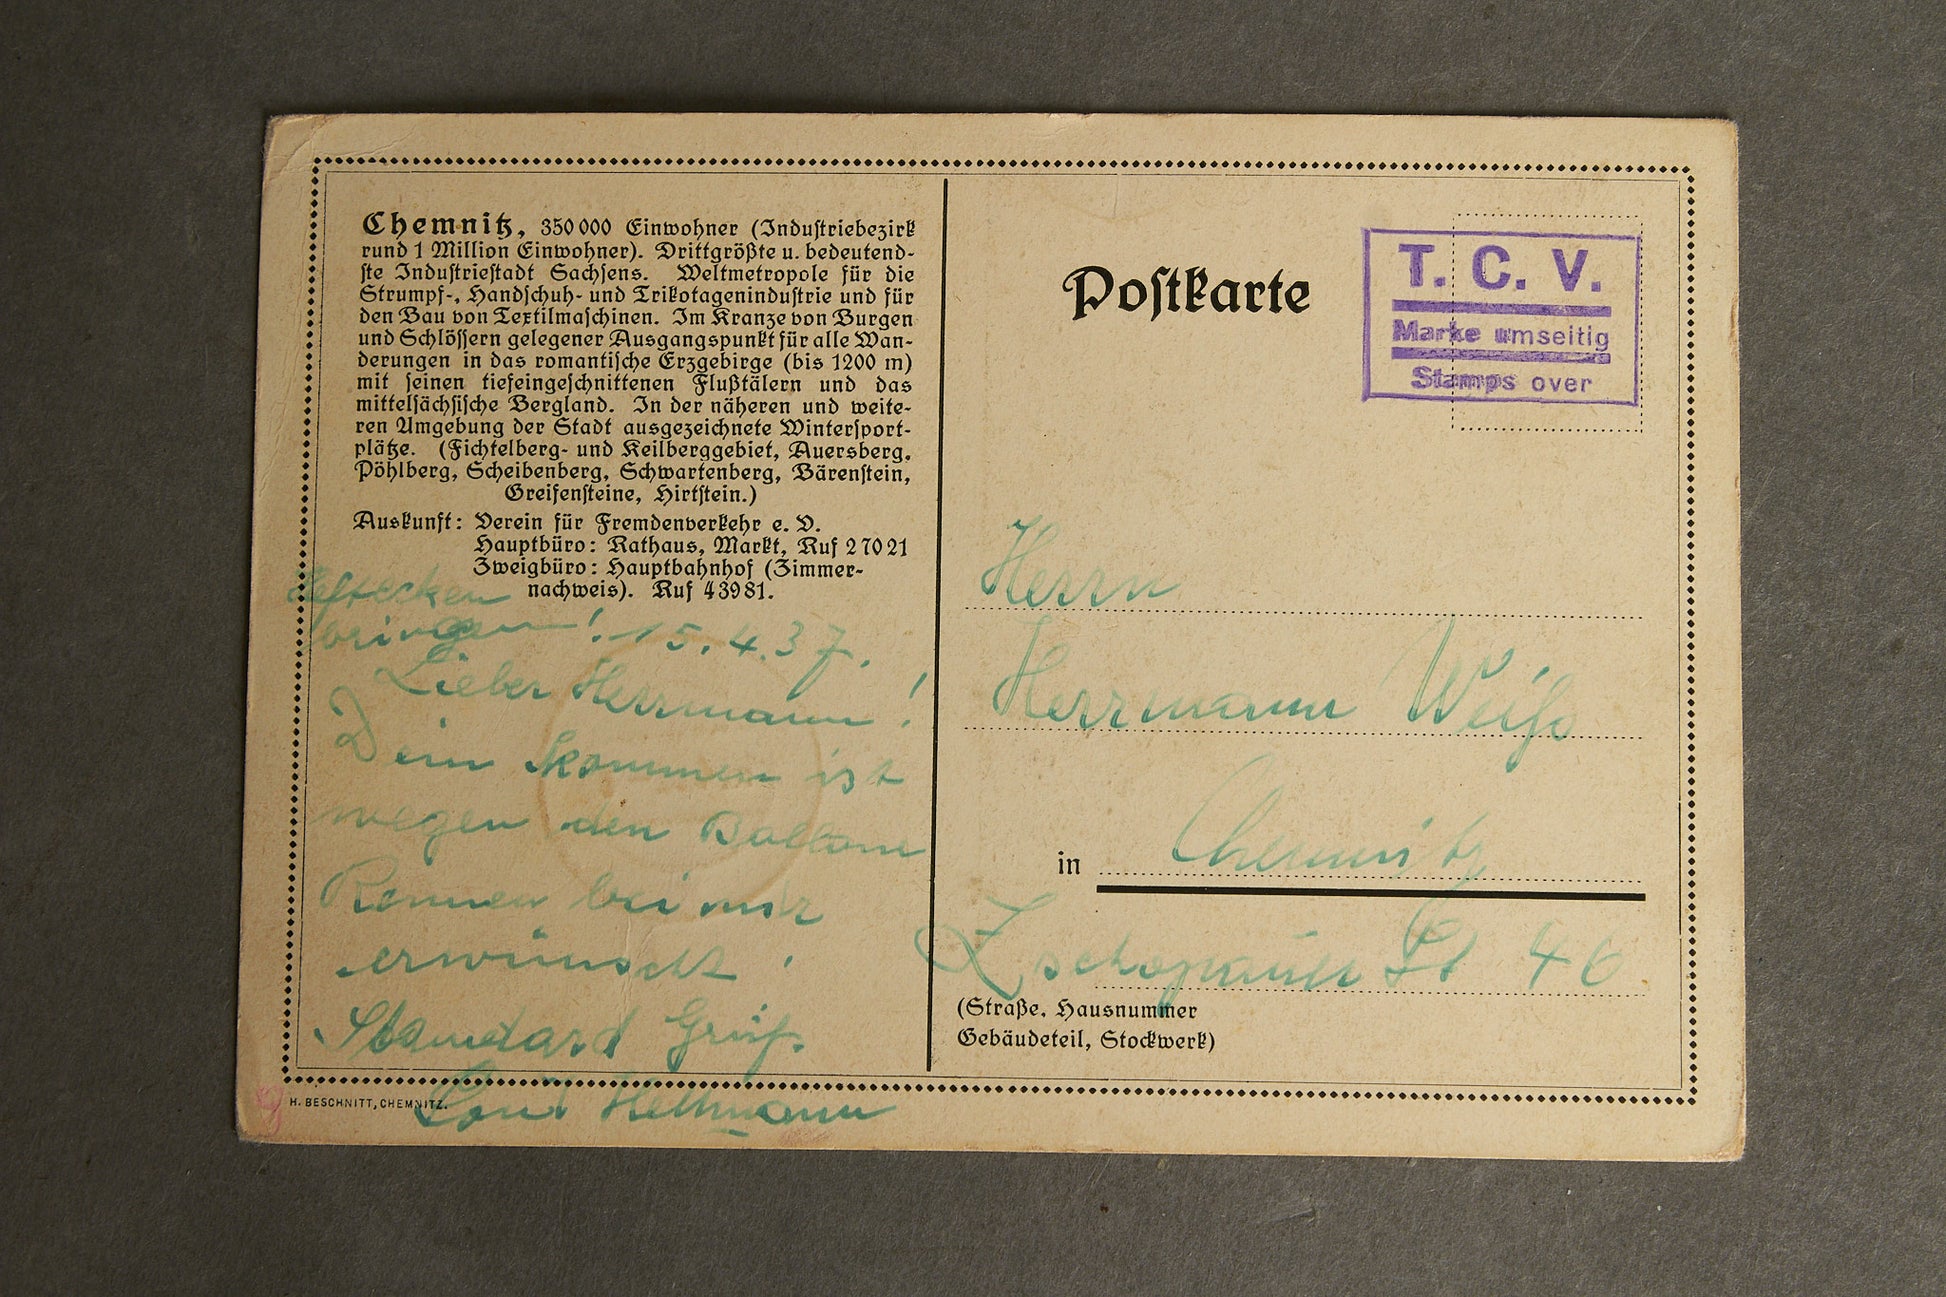 Chemnitz, 350000 Einwohner (Industriebezirk
rund 1 Million Einwohner). Drittgrößte u. bedeutend-
ste Industriestadt Sachsens. Weltmetropole für die
Strumpf-, Handschuh- und Trikotagenindustrie und für
den Bau von Textilmaschinen. Im Kranze von Burgen
und Schlössern gelegener Ausgangspunkt für alle Wan-
derungen in das romantische Erzgebirge (bis 1200 m)
mit seinen tiefeingeschnittenen Flußtälern und das
mittelsächsische Bergland. In der näheren und weite-
ren Umgebung der Stadt ausgezeichnete Wintersport-
plätze. (Fichtelberg- und Keilberggebiet, Auersberg,
Pöhlberg, Scheibenberg, Schwartenberg, Bärenstein,
Greifensteine, Hirtstein.)
Auskunft: Verein für Fremdenverkehr e. V.
Hauptbüro: Rathaus, Markt, Ruf 27021
Zweigbüro: Hauptbahnhof (Zimmer-
nachweis). Ruf 43981.
bringen! 15.4.37.
Lieber Herrmann!
Dein kommen ist
wegen den Ballonn
Rennen bei mir
erwünscht!
Standard Gruß.
Hellmann
H. BESCHNITT, CHEMNITZ.
Postkarte
T. C. V.
Marke umseitig
Stamps over
Herrn
Herrmann Weiß
in Chemnitz
Zschopauer St 46
(Straße, Hausnummer
Gebäudeteil, Stockwerk)